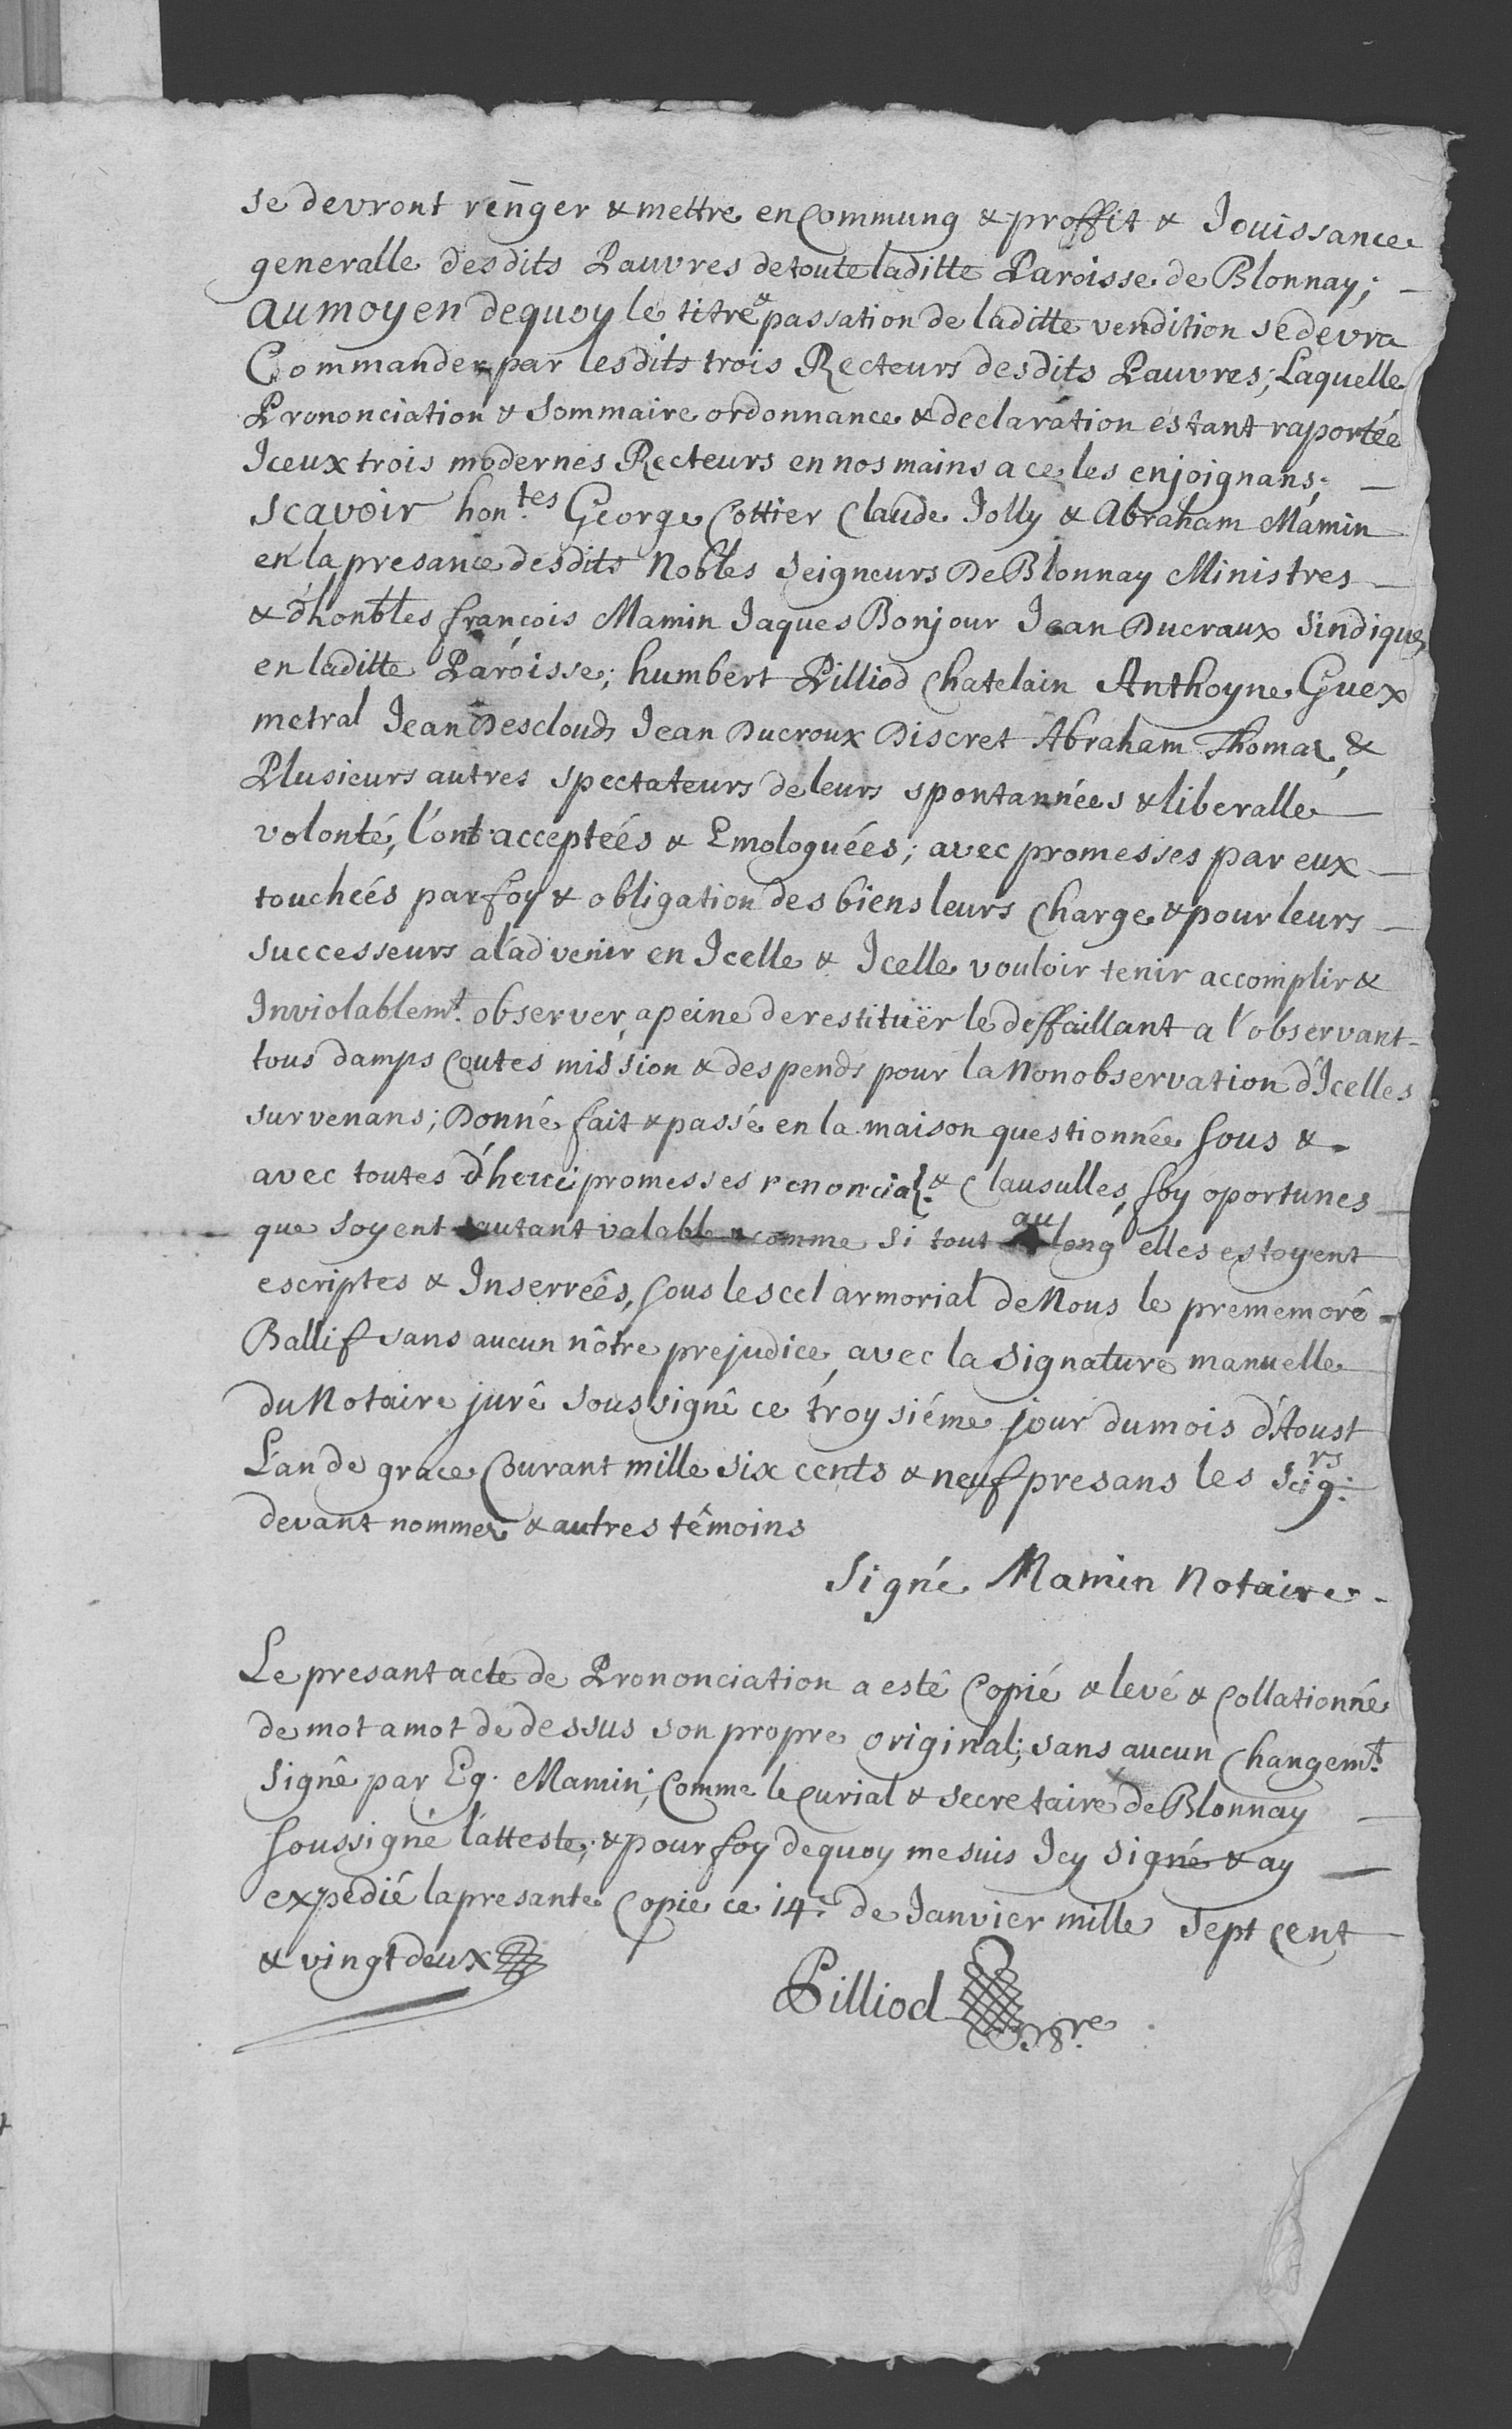 se devront renger & mettre en Commung & proffit & Jouissance
generalle desdits Pauvres de toute laditte Paroisse de Blonnay;
au moyen dequoy le titre & passation de laditte vendition se devra
Commander par lesdits trois Recteurs desdits Pauvres; Laquelle
Prononciation & Sommaire ordonnance & declaration estant raportée
Iceux trois modernes Recteurs en nos mains a ce les enjoignans;
Scavoir hon.tes George Cottier Claude Jolly & Abraham Mamin
en la presance desdits Nobles Seigneurs De Blonnay Ministres
& d'honbles françois Mamin Jaques Bonjour Jean Ducraux Sindiques
en laditte Paroisse; humbert Pilliod Chatelain Anthoyne Guex
metral Jean Descloud Jean Ducroux Discret Abraham Thomas, &
Plusieurs autres spectateurs de leurs spontannées & liberalle
volonté, l'ont acceptées & Emologuées; avec promesses par eux
touchées par foy & obligation des biens leurs Charge & pour leurs
Successeurs a l'advenir en Icelle & Icelle vouloir tenir accomplir &
Inviolablem.t observer, a peine de restituër le deffaillant a l'observant
tous damps Coutes mission & despends pour la Nonobservation d'Icelles
survenans; Donné fait & passé en la maison questionnée Sous &
avec toutes promesses renoncia & Clausulles, foy oportunes
que soyent autant valable comme si tout au long elles estoyent
escriptes & Inserrées, sous le scel armorial de Nous le prememoré
Ballif sans aucun nôtre prejudice, avec la Signature manuelle
du Notaire juré Soussigné ce troysiéme jour du mois d'Aoust
L'an de grace Courant mille six cents & neuf presans les Seig.rs
devant nommez & autres têmoins
Signé Mamin Notaire.
Le presant acte de Prononciation a esté Copié & levé & Collationné
de mot a mot de dessus son propre original; sans aucun Changem.t
Signé par Eg. Mamin; Comme le Curial & Secretaire de Blonnay
Soussigné l'atteste; & pour foy dequoy me suis Icy Signé & ay
expedié la presante Copie ce 14.e de Janvier mille Sept Cent
& vingt deux
Pilliod